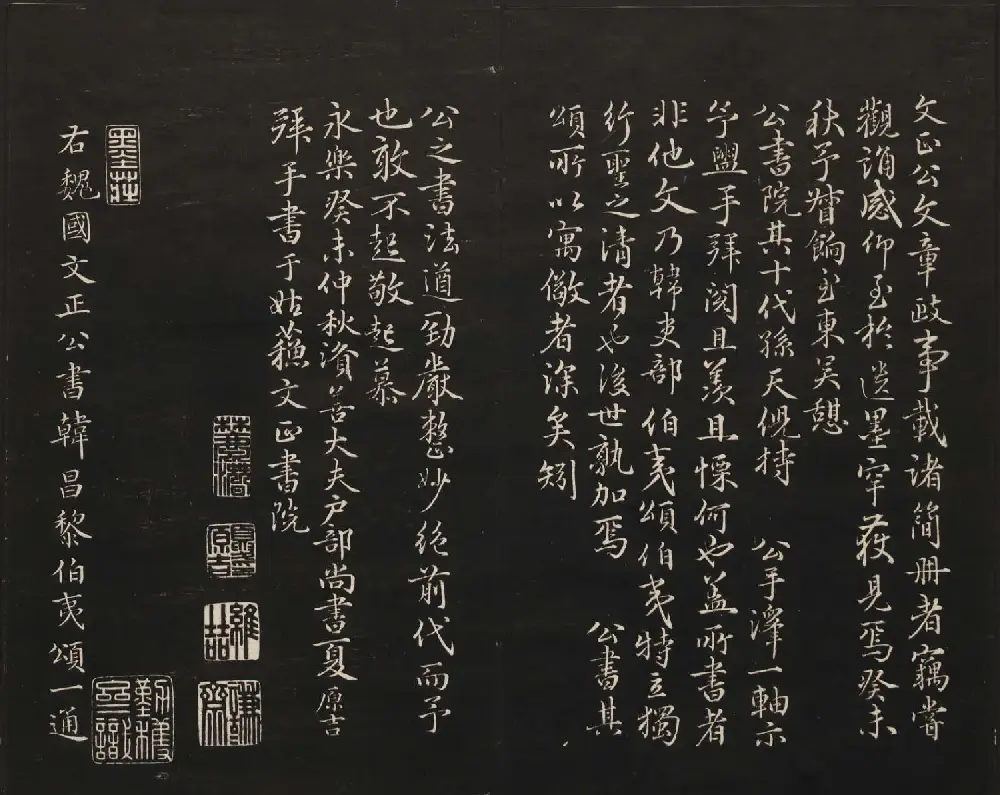 文正公文章政事載諸簡冊者竊嘗
觀誦感仰至於遺墨罕獲見焉癸未
秋予督餉至東吳憩
公書院其十代孫天倪持 公手澤一軸示
予盥手拜閱且羨且慄何也蓋所書者
非他文乃韓吏部伯夷頌伯夷特立獨
行聖之清者也後世孰加焉 公書其
頌所以寓儆者深矣矧
公之書法遒勁嚴整妙絕前代而予
也敢不起敬起慕
永樂癸未仲秋資善大夫戶部尚書夏原吉
拜手書于姑蘇文正書院
維喆
謙齋
右魏國文正公書韓昌黎伯夷頌一通